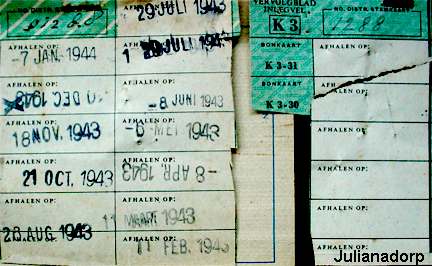 29 JULI 1943
AFHALEN OP:
-7 JAN. 1944
AFHALEN OP:
1 29 JULI 1943
AFHALEN OP:
0 DEC 1943
AFHALEN OP:
-8 JUNI 1943
AFHALEN OP:
18 NOV. 1943
AFHALEN OP:
-6 MEI 1943
AFHALEN OP:
21 OCT. 1943
AFHALEN OP:
-8 APR. 1943
AFHALEN OP:
11 MAART 1943
AFHALEN OP:
26 AUG. 1943
AFHALEN OP:
11 FEB. 1943
VERVOLGBLAD
INLEGVEL
K 3
BONKAART
K 3-31
BONKAART
K 3-30
NO. DISTR. STAMKAART
1288
AFHALEN OP:
AFHALEN OP:
AFHALEN OP:
AFHALEN OP:
AFHALEN OP:
AFHALEN OP:
Julianadorp